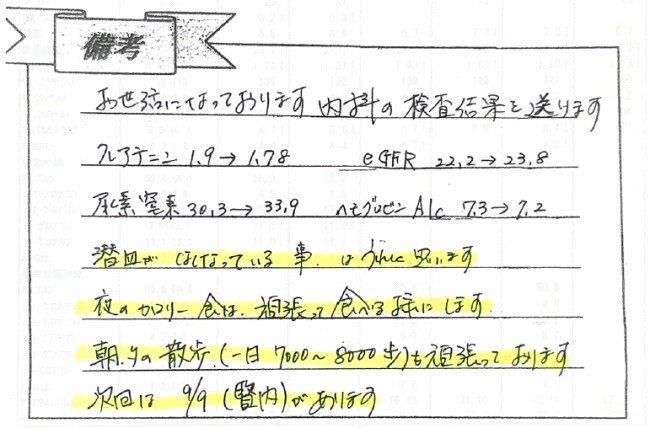 備考
お世話になっております 内科の検査結果を送ります
クレアチニン 1.9→1.78 eGFR 22.2→23.8
尿素窒素 30.3→33.9 ヘモグロビン A1c 7.3→7.2
潜血が なくなっている 事. は うれしく思います
夜のカロリー食は. 頑張って食べる様にします
朝.夕の散歩.(一日 7000〜8000歩)も頑張っております
次回は 9/9 (腎内)があります